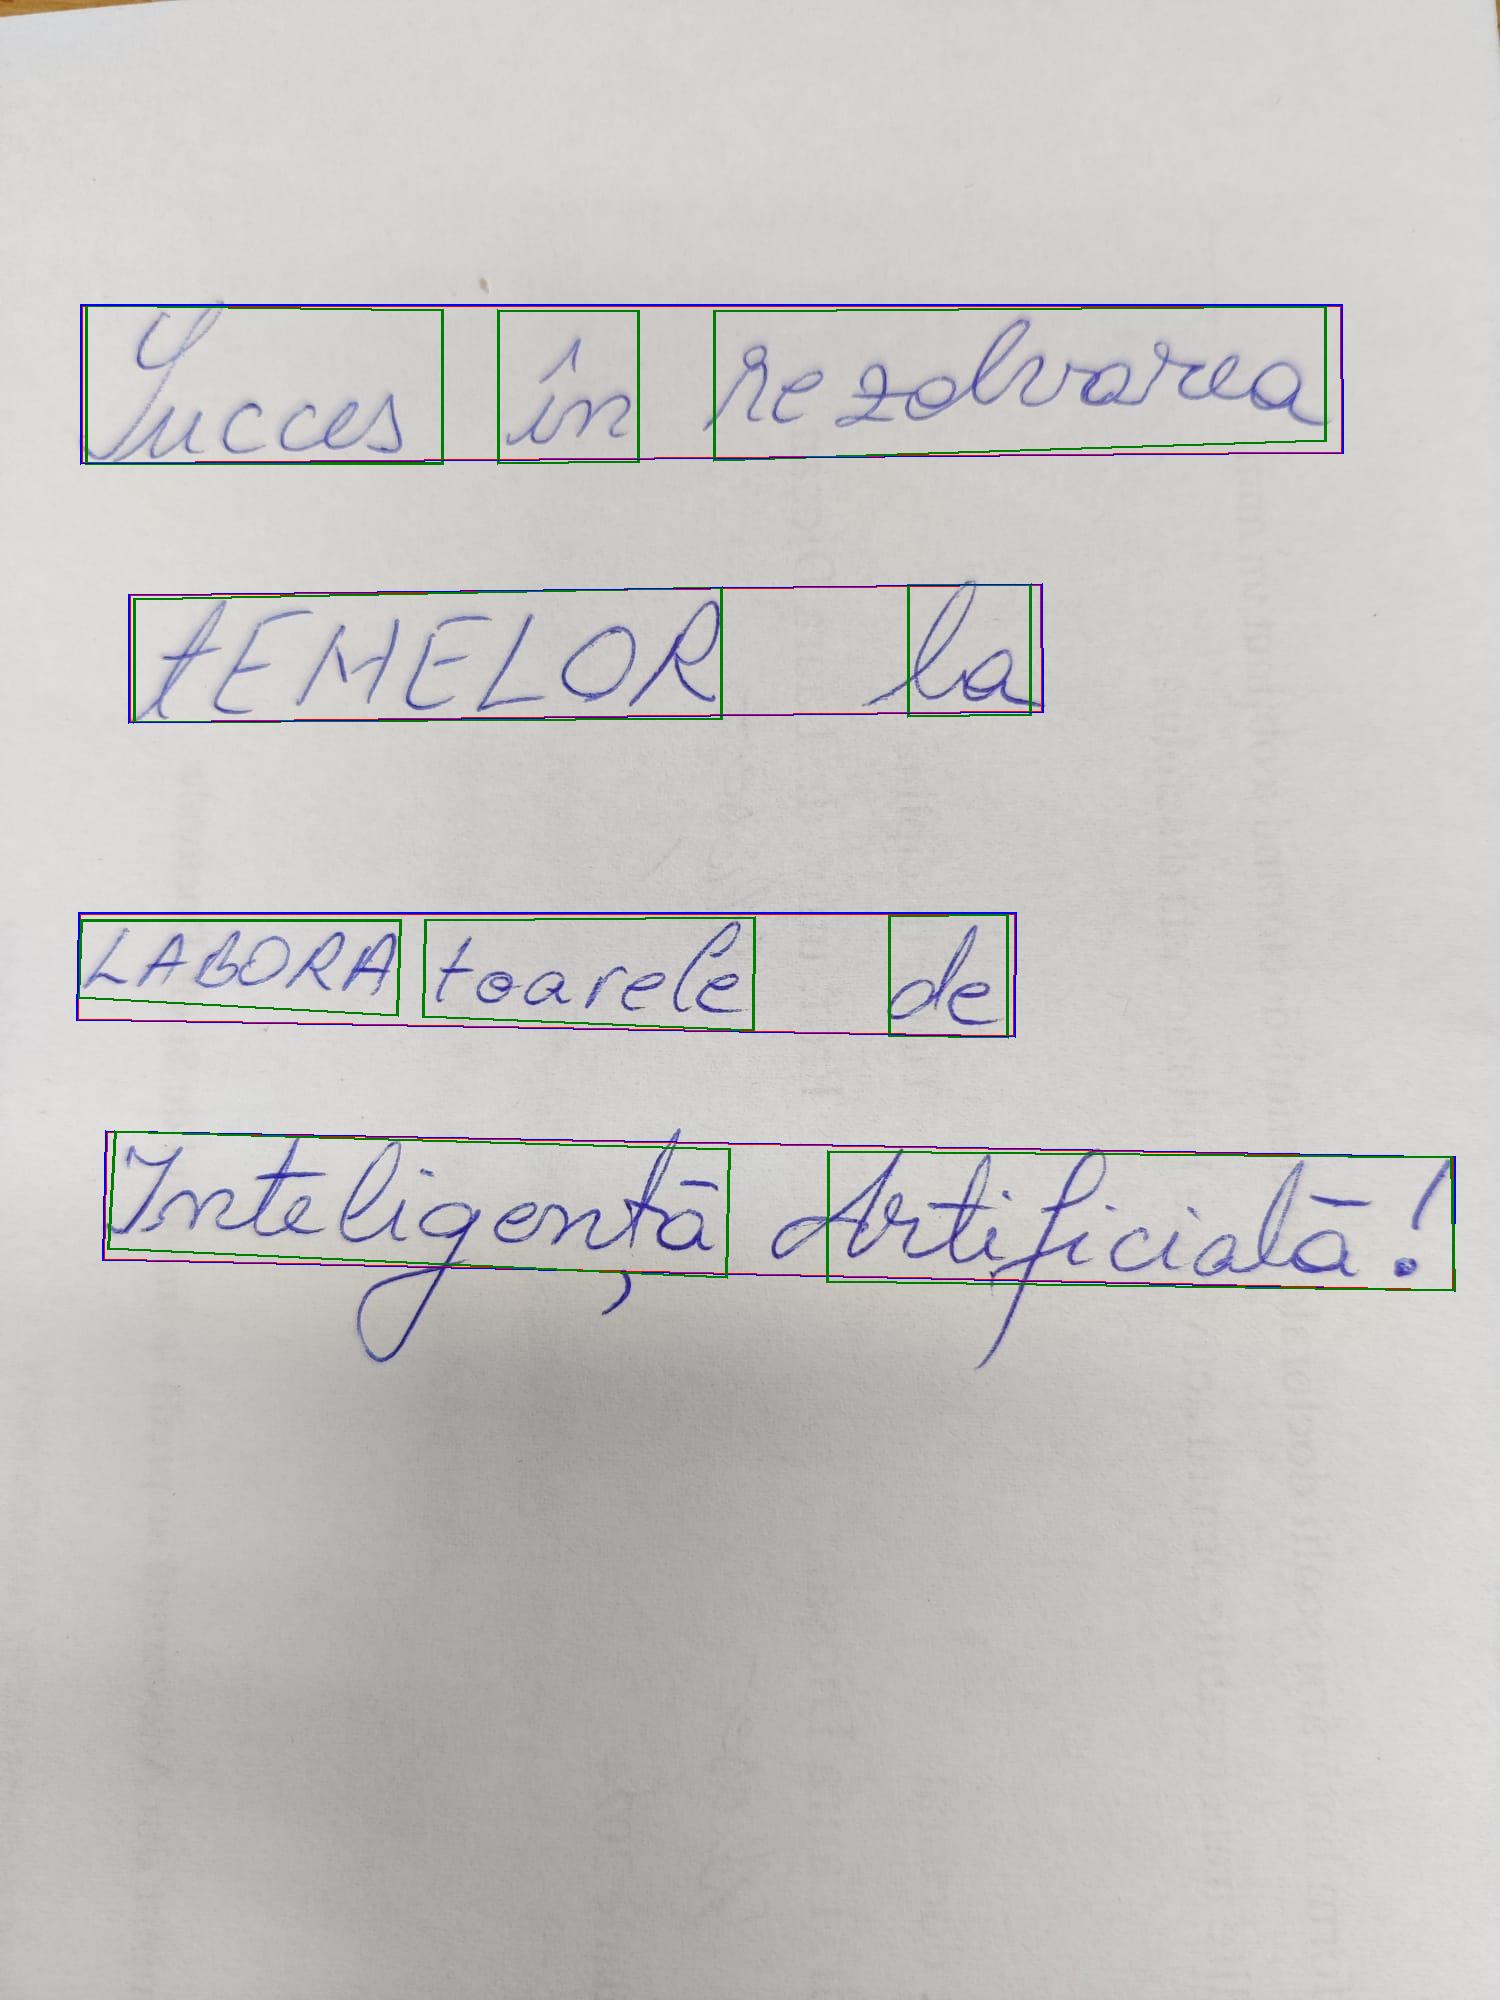 Succes în rezolvarea
tEMELOR la
LABORA toarele de
Inteligență Artificială!